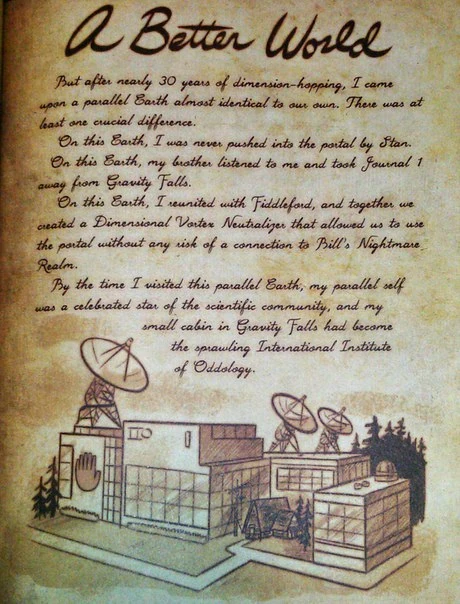 A Better World
But after nearly 30 years of dimension-hopping, I came
upon a parallel Earth almost identical to our own. There was at
least one crucial difference.
On this Earth, I was never pushed into the portal by Stan.
On this Earth, my brother listened to me and took Journal 1
away from Gravity Falls.
On this Earth, I reunited with Fiddleford, and together we
created a Dimensional Vortex Neutralizer that allowed us to use
the portal without any risk of a connection to Bill's Nightmare
Realm.
By the time I visited this parallel Earth, my parallel self
was a celebrated star of the scientific community, and my
small cabin in Gravity Falls had become
the sprawling International Institute
of Oddology.